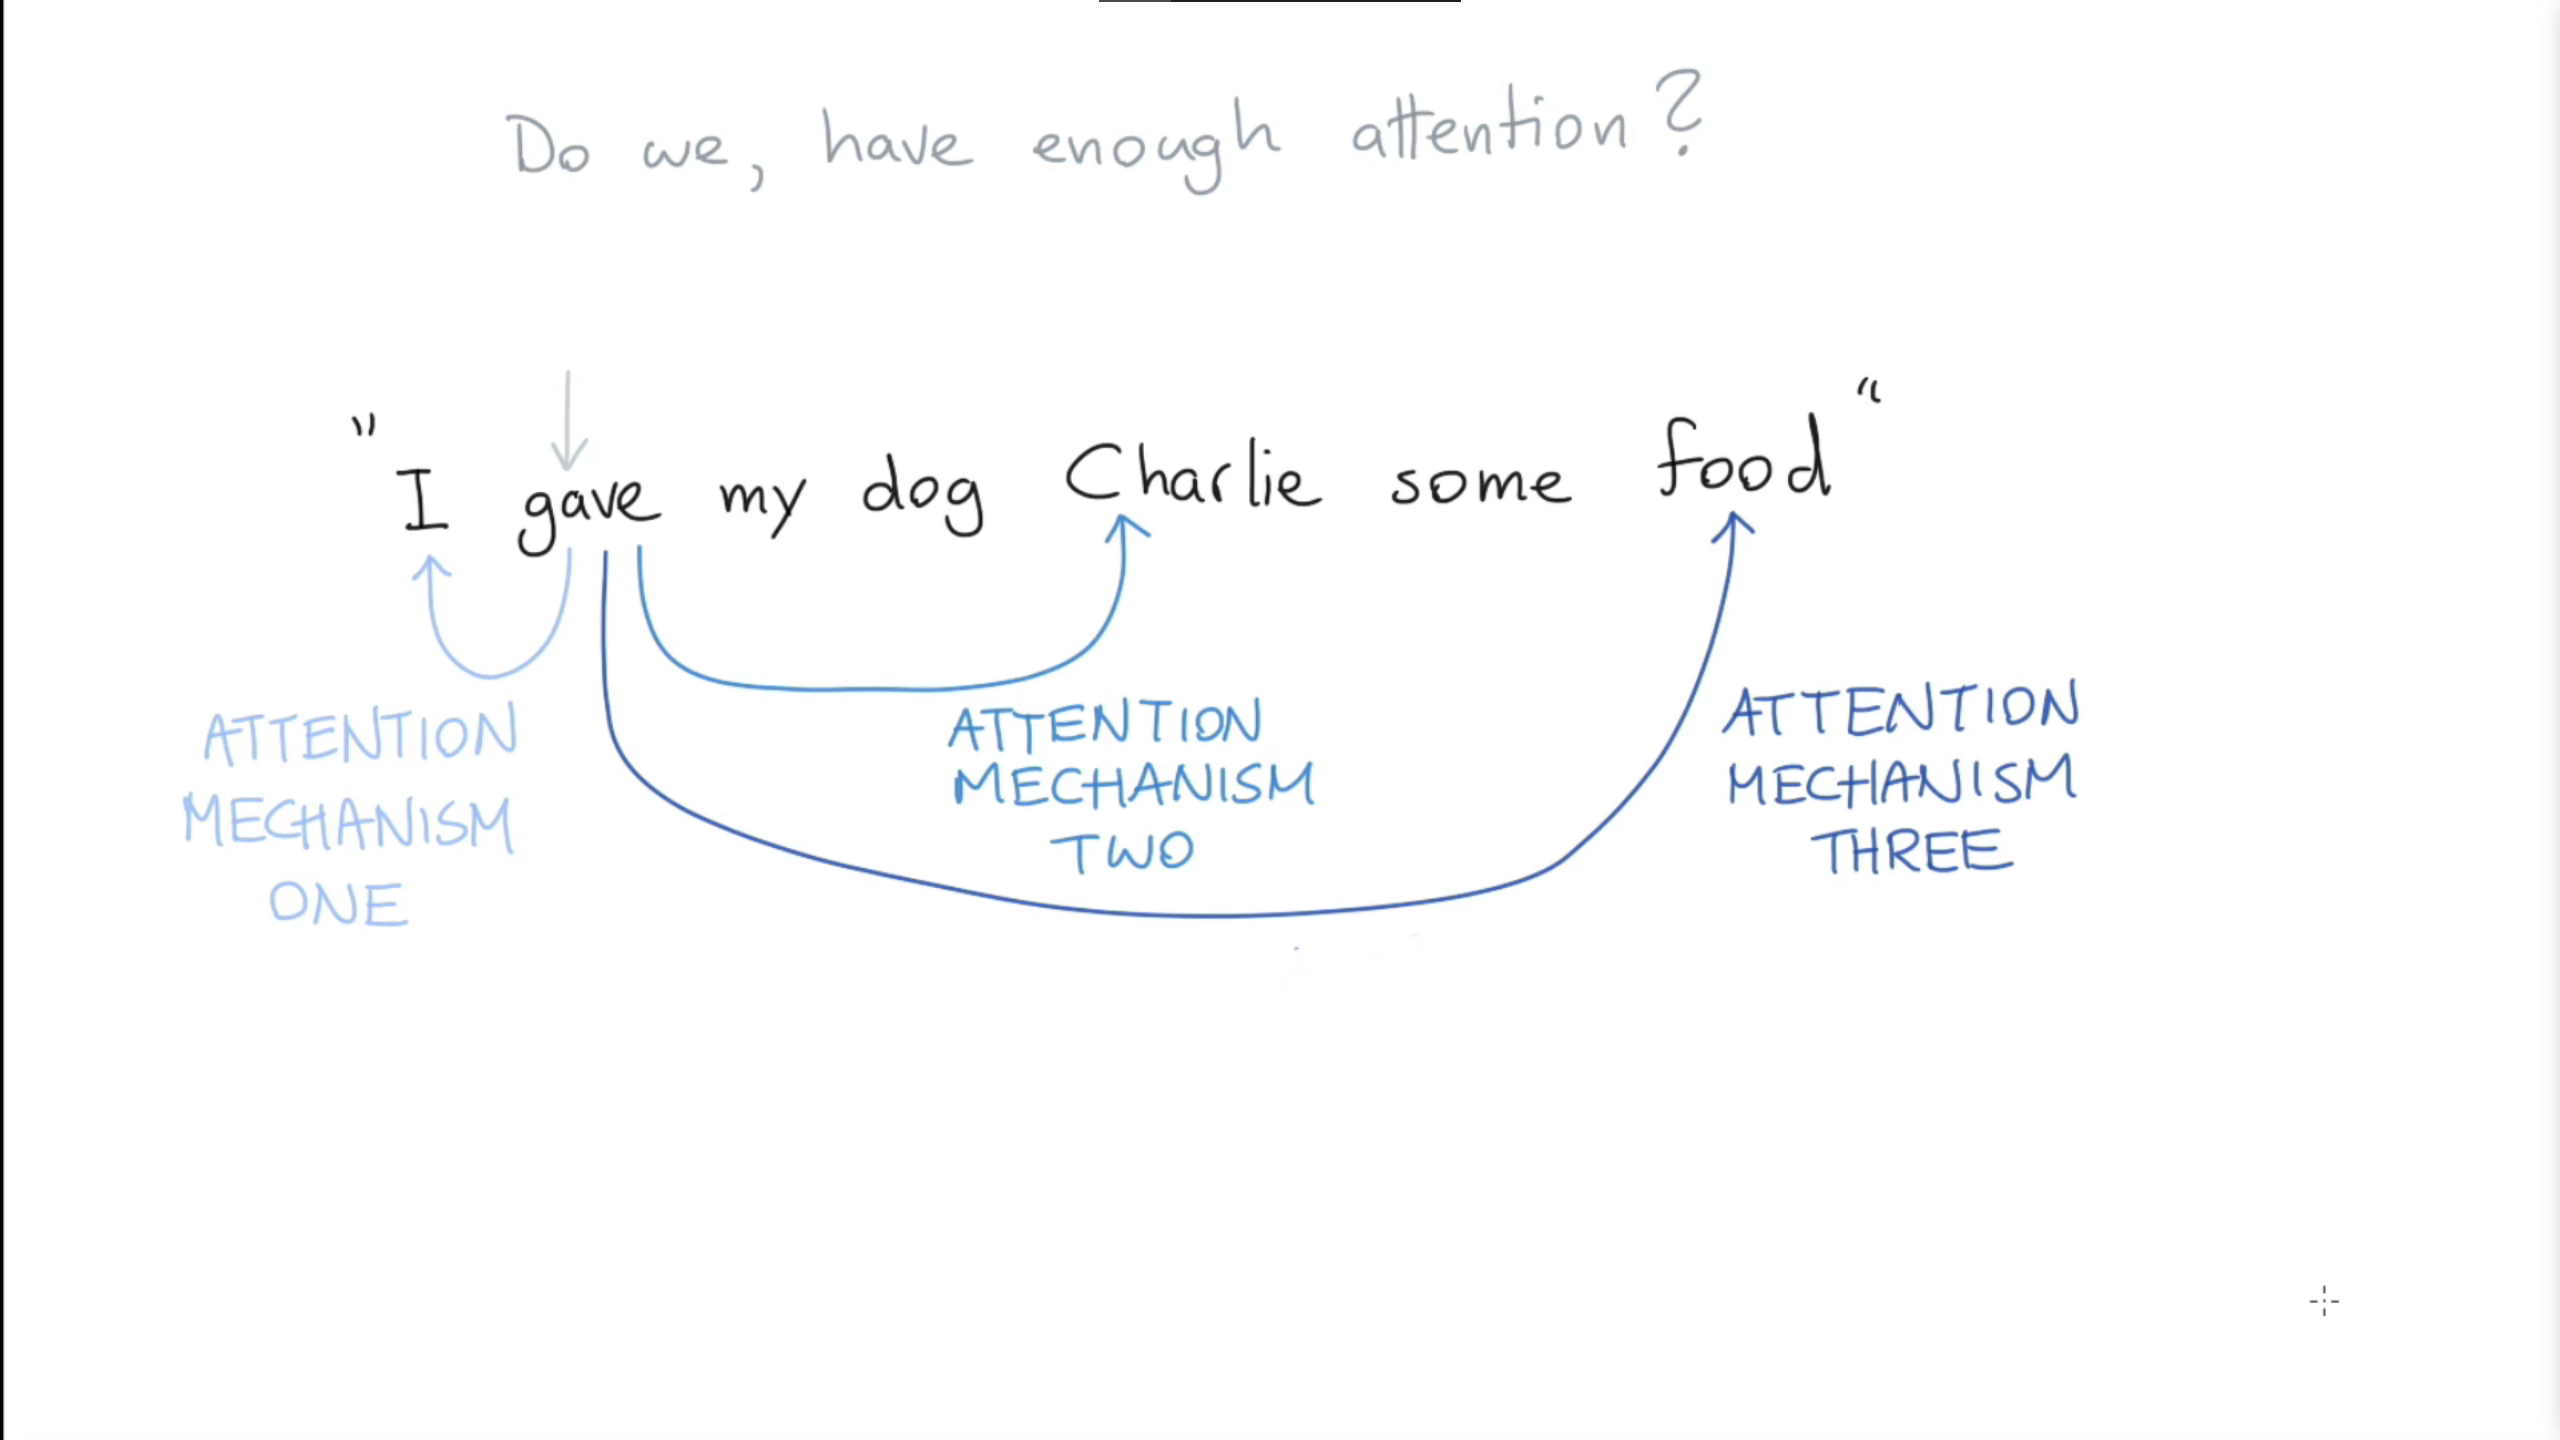 Do we, have enough attention?
"I gave my dog Charlie some food"
ATTENTION
MECHANISM
ONE
ATTENTION
MECHANISM
TWO
ATTENTION
MECHANISM
THREE